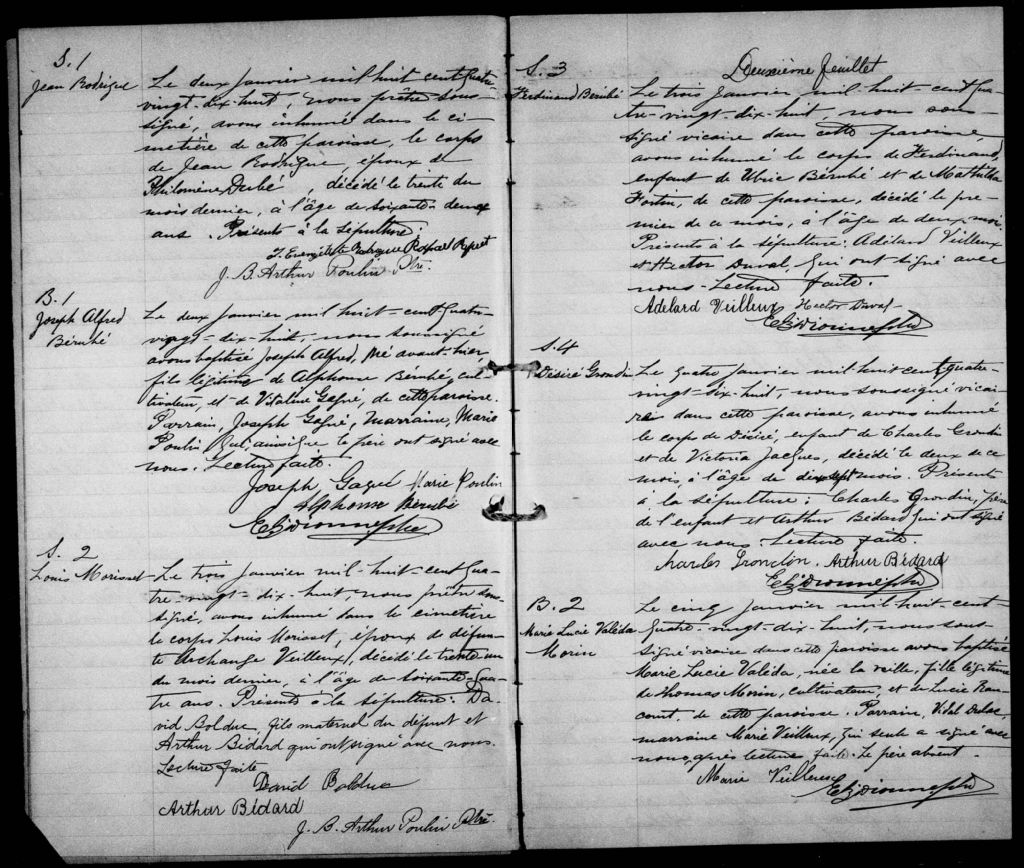 S. 1
Jean Rodrigue
Le deux janvier mil huit cent quatre-
vingt-dix-huit, nous prêtre sous-
signé, avons inhumé dans le ci-
metière de cette paroisse, le corps
de Jean Rodrigue, époux de
Philomène Dubé, décédé le trente du
mois dernier, à l'âge de soixante-deux
ans. Présents à la sépulture:
Rodrigue Raphael
J. B. Arthur Poulin Ptre.
B. 1
Joseph Alfred
Bérubé
Le deux janvier mil huit-cent quatre-
vingt-dix-huit, nous soussigné
avons baptisé Joseph Alfred, né avant-hier,
fils légitime de Alphonse Bérubé, cul-
tivateur, et de Vitaline Gagné, de cette paroisse.
Parrain, Joseph Gagné, marraine, Marie
Poulin qui, ainsi que le père ont signé avec
nous. Lecture faite.
Joseph Gagné Marie Poulin
Alphonse Bérubé
S. 2
Louis Morisset
Le trois janvier mil-huit-cent qua-
tre-vingt-dix-huit nous prêtre sous-
signé, avons inhumé dans le cimetière
le corps Louis Morisset, époux de défun-
te Archange Veilleux, décédé le trente-un
du mois dernier, à l'âge de soixante-qua-
tre ans. Présents à la sépulture: Da-
vid Bolduc, fils maternel du défunt et
Arthur Bédard qui ont signé avec nous.
Lecture faite
David Bolduc
Arthur Bédard
J. B. Arthur Poulin Ptre.
Deuxième feuillet
S. 3
Ferdinand Bérubé
Le trois janvier mil huit-cent qua-
tre-vingt-dix-huit, nous sous-
signé vicaire dans cette paroisse,
avons inhumé le corps de Ferdinand,
enfant de Ubric Bérubé et de Mathilda
Fortin, de cette paroisse, décédé le pre-
mier de ce mois, à l'âge de deux mois.
Présents à la sépulture: Adélard Veilleux
et Hector Duval, qui ont signé avec
nous. Lecture faite.
Adelard Veilleux Hector Duval
S. 4
Désiré Grondin
Le quatre janvier mil huit cent quatre-
vingt-dix-huit, nous soussigné vicai-
re dans cette paroisse, avons inhumé
le corps de Désiré, enfant de Charles Grondin
et de Victoria Jacques, décédé le deux de ce
mois, à l'âge de dix-sept mois. Présents
à la sépulture: Charles Grondin, père
de l'enfant et Arthur Bédard qui ont signé
avec nous. Lecture faite.
Charles Grondin. Arthur Bédard
B. 2
Marie Lucie Valéda
Morin
Le cinq janvier mil huit-cent-
quatre-vingt-dix-huit, nous sous-
signé vicaire dans cette paroisse avons baptisé
Marie Lucie Valéda, née la veille, fille légitime
de Thomas Morin, cultivateur, et de Lucie Ran-
court. de cette paroisse. Parrain, Vital Dulac,
marraine Marie Veilleux, qui seule a signé avec
nous, après lecture faite. Le père absent.
Marie Veilleux